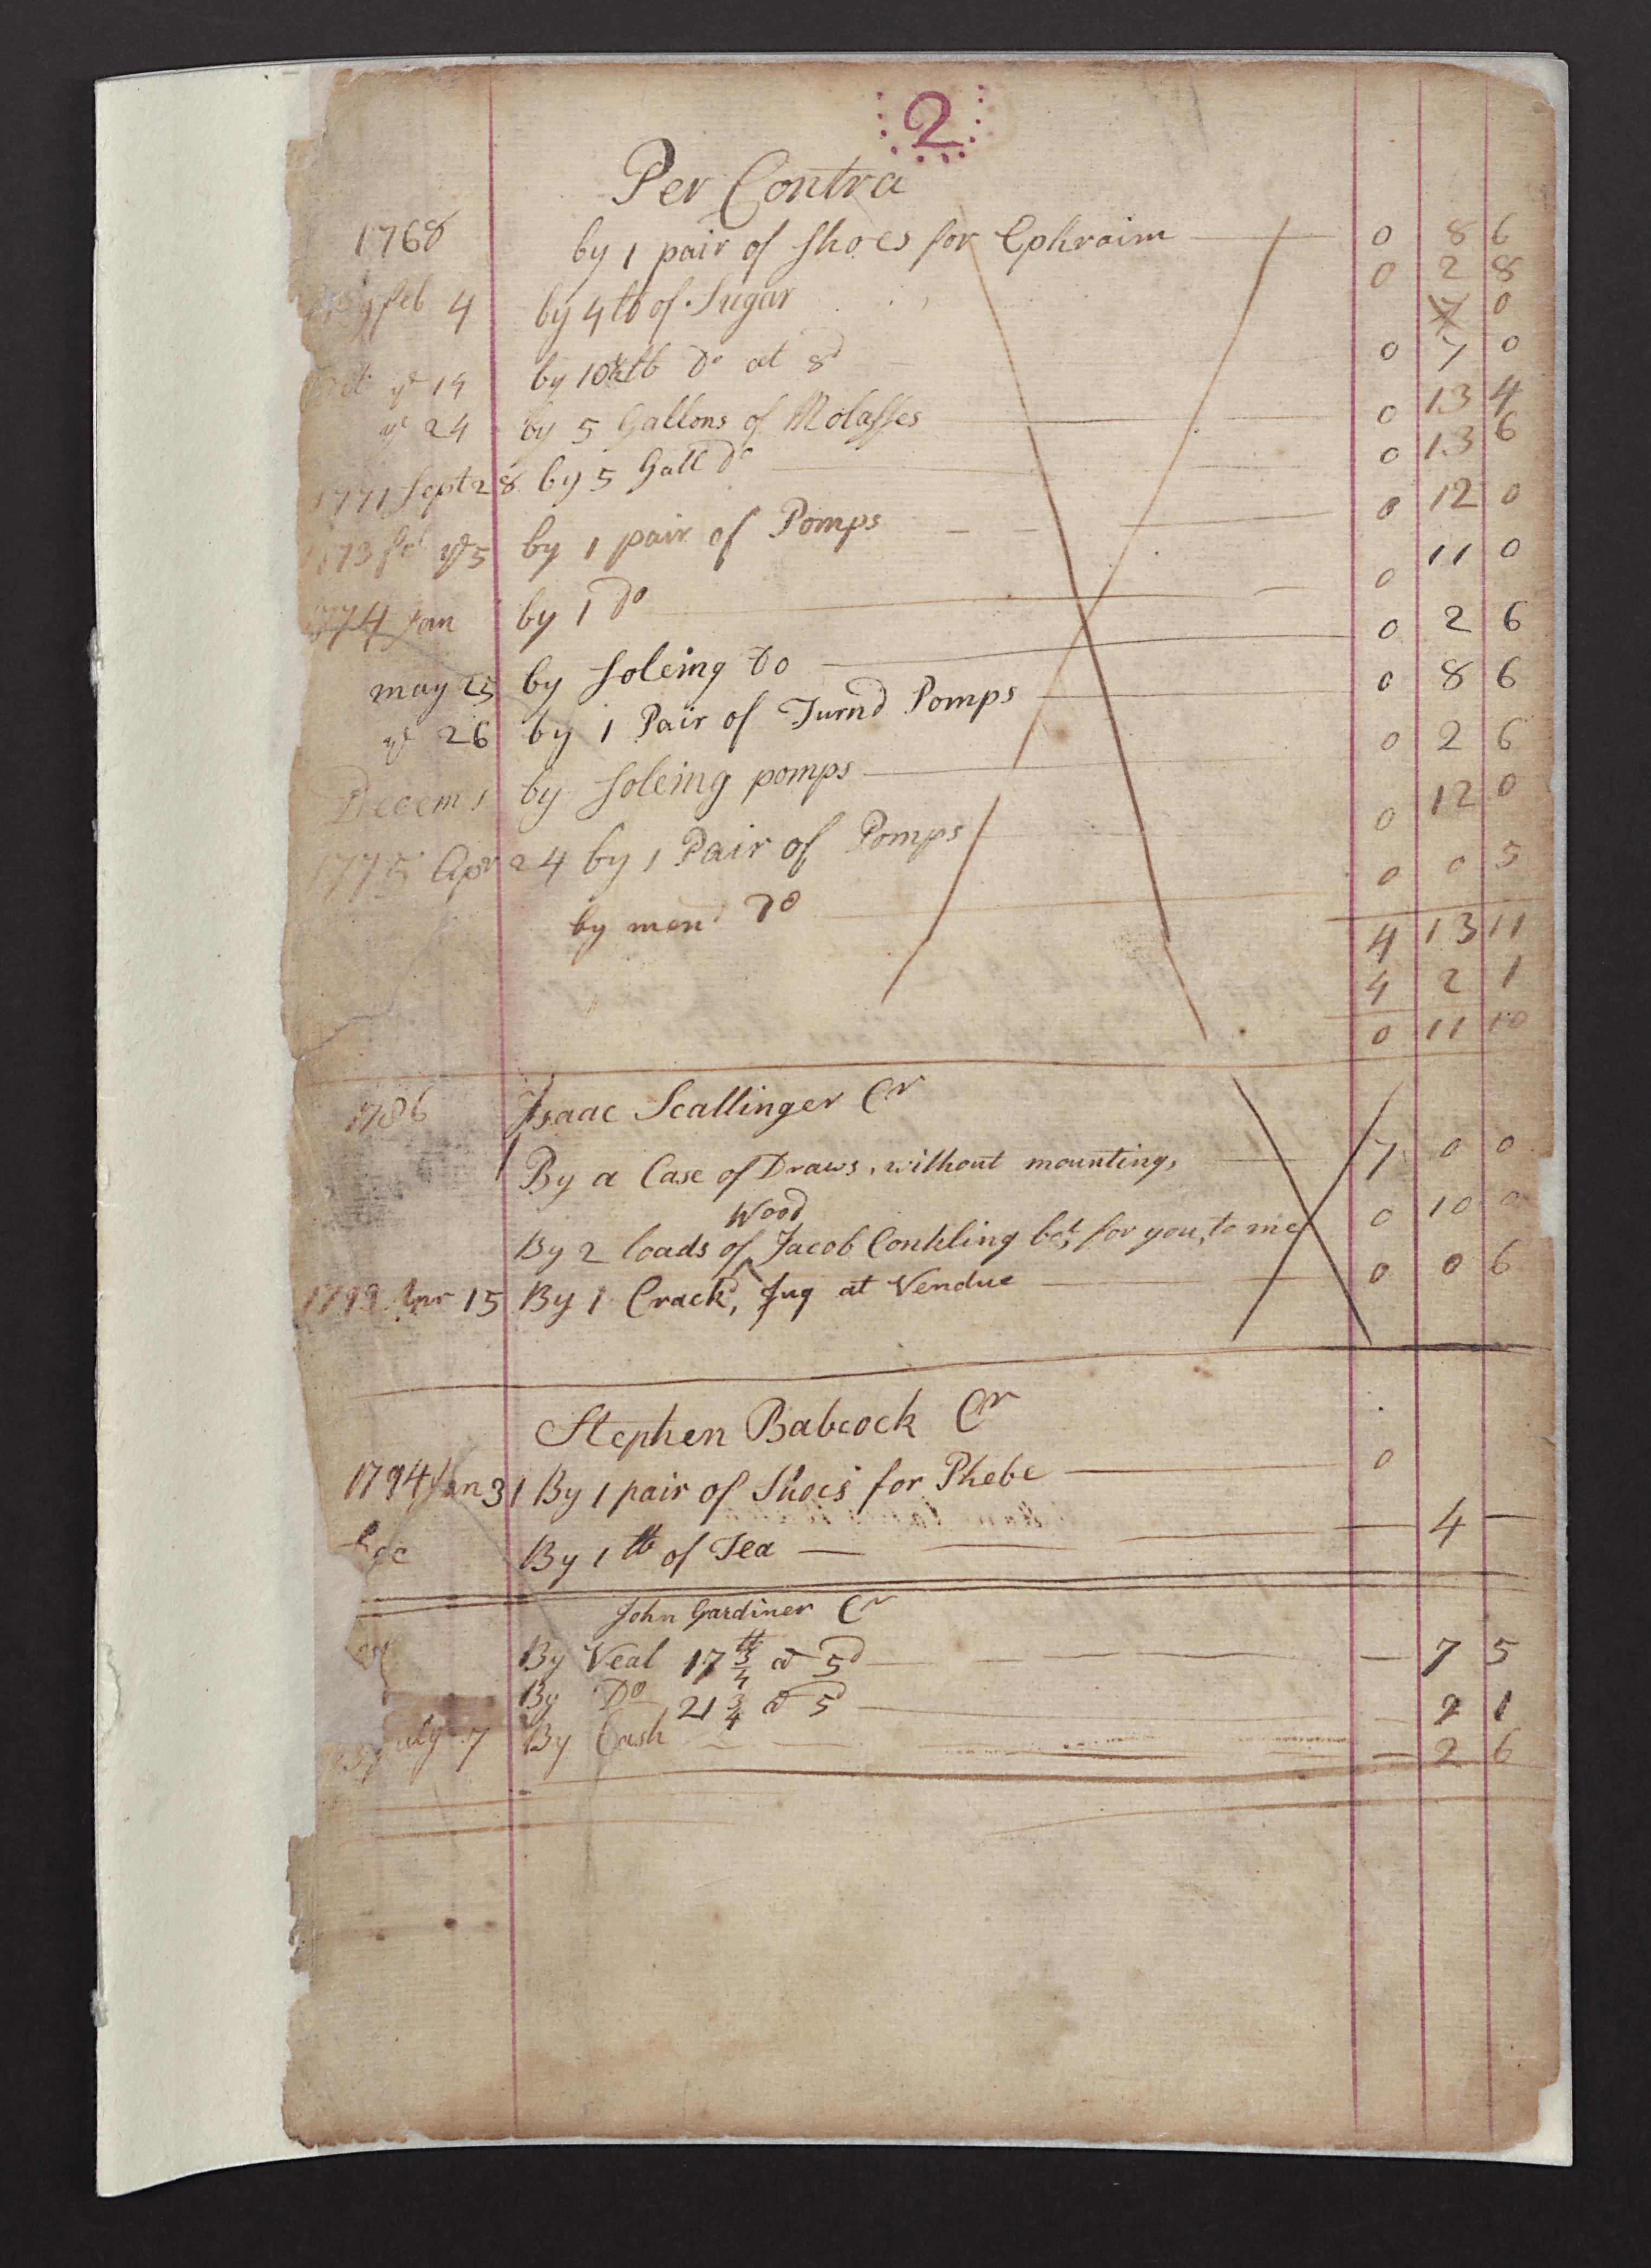 2
Per Contra
1768 by 1 pair of Shoes for Ephraim 0 8 6
feb 4 by 4 lb of Sugar 0 2 8
7 0
ye 19 by 10½ lb Do at 8d 0 7 0
ye 24 by 5 Gallons of Molasses 0 13 4
1771 Sept 28 by 5 Gall Do 0 13 6
ye 5 by 1 pair of Pomps 0 12 0
1774 Jan by 1 do 0 11 0
may 25 by Soleing Do 0 2 6
ye 26 by 1 Pair of Turnd Pomps 0 8 6
Decem 1 by Soleing pomps 0 2 6
1775 Apr 24 by 1 Pair of Pomps 0 12 0
by men Do 0 0 5
4 13 11
4 2 1
0 11 10
1786 Isaac Scallinger Cr
By a Case of Draws, without mounting, 7 0 0
Wood
By 2 loads of Jacob Conkling bot for you, to me 0 10 0
Apr 15 By 1 Crackd, Jug at Vendue 0 0 6
Stephen Babcock Cr
1794 Jan 31 By 1 pair of Shoes for Phebe 0
By 1 lb of Tea 4
John Gardiner Cr
By Veal 17¾ lb @ 5d 7 5
By Do 21¾ @ 5d 9 1
July 7 By Cash 2 6